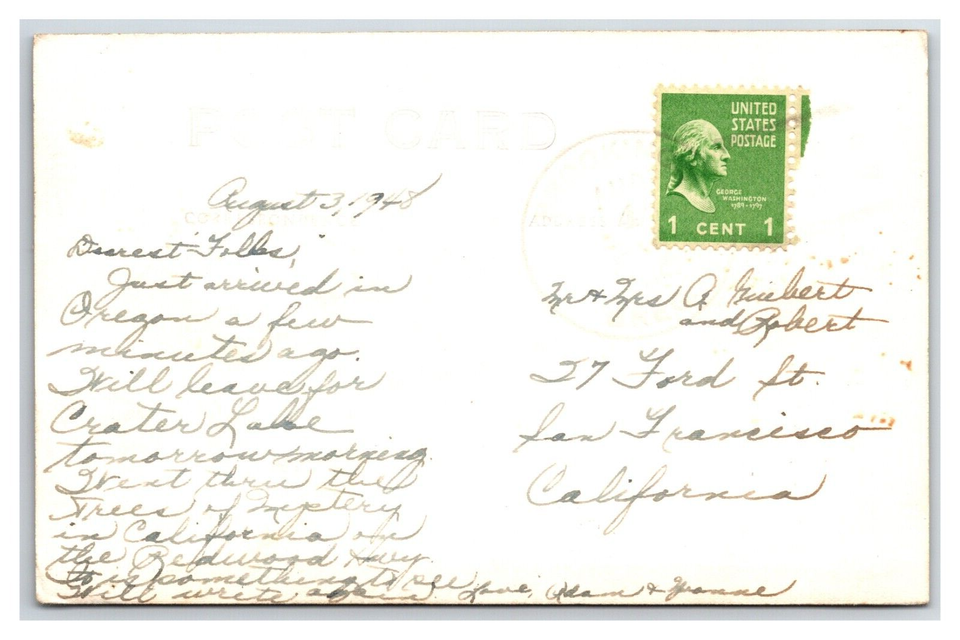 POST CARD
UNITED
STATES
POSTAGE
GEORGE
WASHINGTON
1789-1797
1 CENT 1
August 3, 1948
Dearest Folks,
Just arrived in
Oregon a few
minutes ago.
Will leave for
Crater Lake
tomorrow morning.
Went thru the
Trees of Mystery
in California on
the Redwood Hwy.
It is something to see
Will write again. Love, Adam & Yvonne
Mr & Mrs A. Guibert
and Robert
27 Ford St.
San Francisco
California